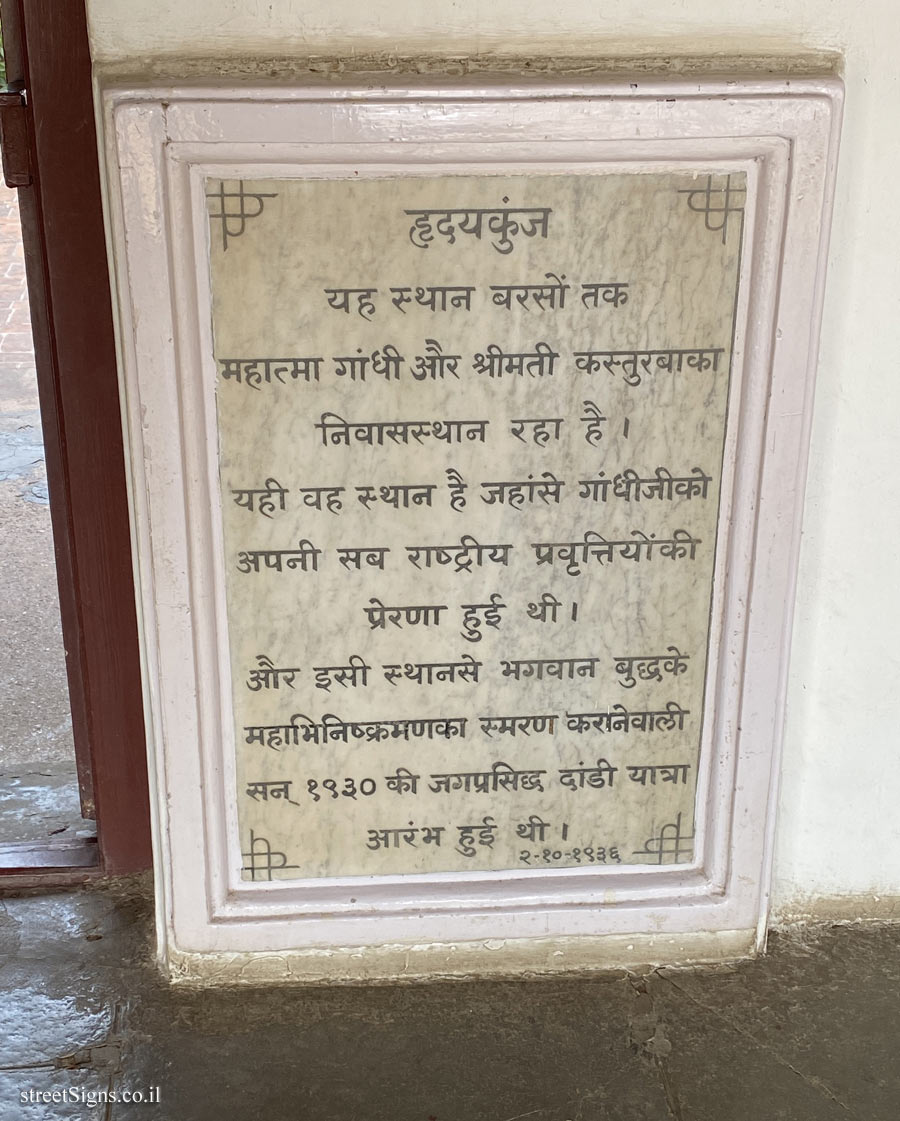 हृदयकुंज
यह स्थान बरसों तक
महात्मा गांधी और श्रीमती कस्तुरबाका
निवासस्थान रहा है ।
यही वह स्थान है जहांसे गांधीजीको
अपनी सब राष्ट्रीय प्रवृत्तियोंकी
प्रेरणा हुई थी ।
और इसी स्थानसे भगवान बुद्धके
महाभिनिष्क्रमणका स्मरण करानेवाली
सन् १९३० की जगप्रसिद्ध दांडी यात्रा
आरंभ हुई थी ।
२-१०-१९३६
streetSigns.co.il